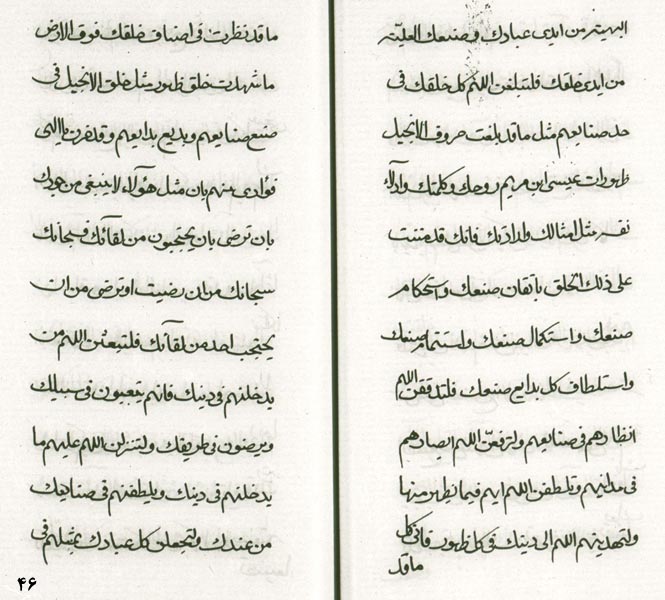 البهية من ايدى عبادك وصنعك العليّة
من ايدى خلقك فلتبلغن اللهم كل خلقك فى
حد صنايعهم مثل ما قد بلغت حروف الانجيل
ظهورات عيسى ابن مريم روحك وكلمتك
مثل امثالك ولدلالاتك فانك قد مننت
على ذلك الخلق باتقان صنعك واستحكام
صنعك واستكمال صنعك صنعك
واستلطاف كل بدايع صنعك فلتدققن اللهم
انظارهم فى صنايعهم ولترفعن اللهم ابصارهم
فى مدائنهم وتلطفن اللهم ايم فيما تظهر منها
ولتهدينهم اللهم الى دينك فى كل ظهور فانى كل
ما قد
ما قد نظرت فى اصناف خلقك فوق الارض
ما شهدت خلق ظهور مثل خلق الانجيل فى
صنع صنايعهم وبديع بدايعهم وقد يا الهى
فؤادى منهم بان مثل هؤلاء لا ينبغى من جودك
بان ترضى بان يحتجبون من لقائك فسبحانك
سبحانك من ان رضيت او ترضى من ان
يحتجب احد من لقائك فلتبعثن اللهم من
يدخلنهم فى دينك فانهم يتعبون فى سبيلك
ويرضون فى طريقك ولتنزلن اللهم عليهم ما
يدخلنهم فى دينك ويلطفنهم فى صنايعك
من عندك ولتجعلن كل عبادك بمثلهم فى
۴۶